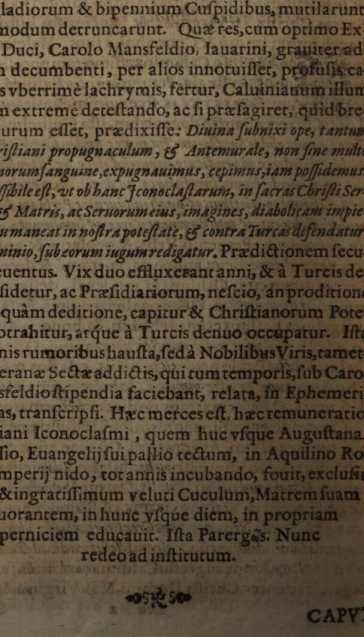 ladiorum & bipennium Cuspidibus, mutilarunt
modum detruncarunt. Quæ res, cum optimo Ex-
Duci, Carolo Mansfeldio, Iauarini, grauiter ad-
n decumbenti, per alios innotuisset, profusis ca-
s vberrimè lachrymis, fertur, Caluinianum illum
n extremè detestando, ac si præsagiret, quid bre-
urum esset, prædixisse: Diuina subnixi ope, tantum
ristiani propugnaculum, & Antemurale, non sine multo
norum sanguine, expugnauimus, cepimus, iam possidemus
ssibile est, vt ob hanc Iconoclastarum, in sacras Christi Ser-
& Matris, ac Seruorum eius, imagines, diabolicam impie
umaneat in nostra potestate, & contra Turcas defendatur
minio, sub eorum iugum redigatur. Prædictionem secu-
euentus. Vix duo effluxerant anni, & à Turcis de-
sidetur, ac Præsidiariorum, nescio, an proditione
quàm deditione, capitur & Christianorum Pote-
otrahitur, atque à Turcis denuo occupatur. Ista
nis rumoribus hausta, sed à Nobilibus Viris, tamet-
eranæ Sectæ addictis, qui tum temporis, sub Caro-
sfeldio stipendia faciebant, relata, in Ephemeri-
as, transcripsi. Hæc merces est, hæc remuneratio
iani Iconoclasmi, quem huc vsque Augustana
sio, Euangelij sui pallio tectum, in Aquilino Ro-
mperij nido, tot annis incubando, fouit, exclusit
& ingratissimum veluti Cuculum, Matrem suam
uorantem, in hunc vsque diem, in propriam
perniciem educauit. Ista Parergῶs. Nunc
redeo ad institutum.
CAPVT